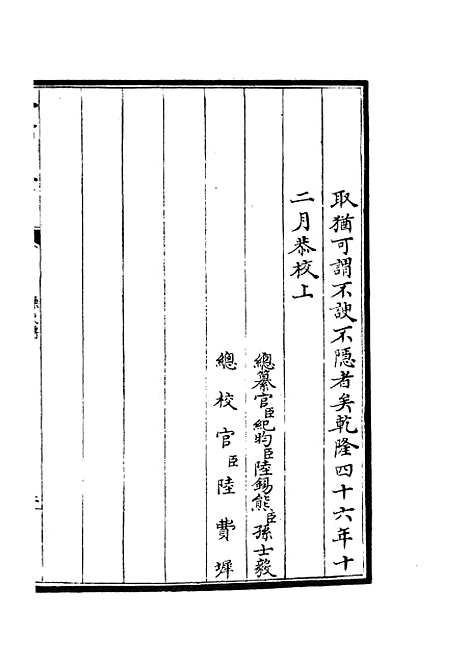 取猶可謂不諛不隱者矣乾隆四十六年十
二月恭校上
總纂官臣紀昀臣陸錫熊臣孫士毅
總校官臣陸費墀